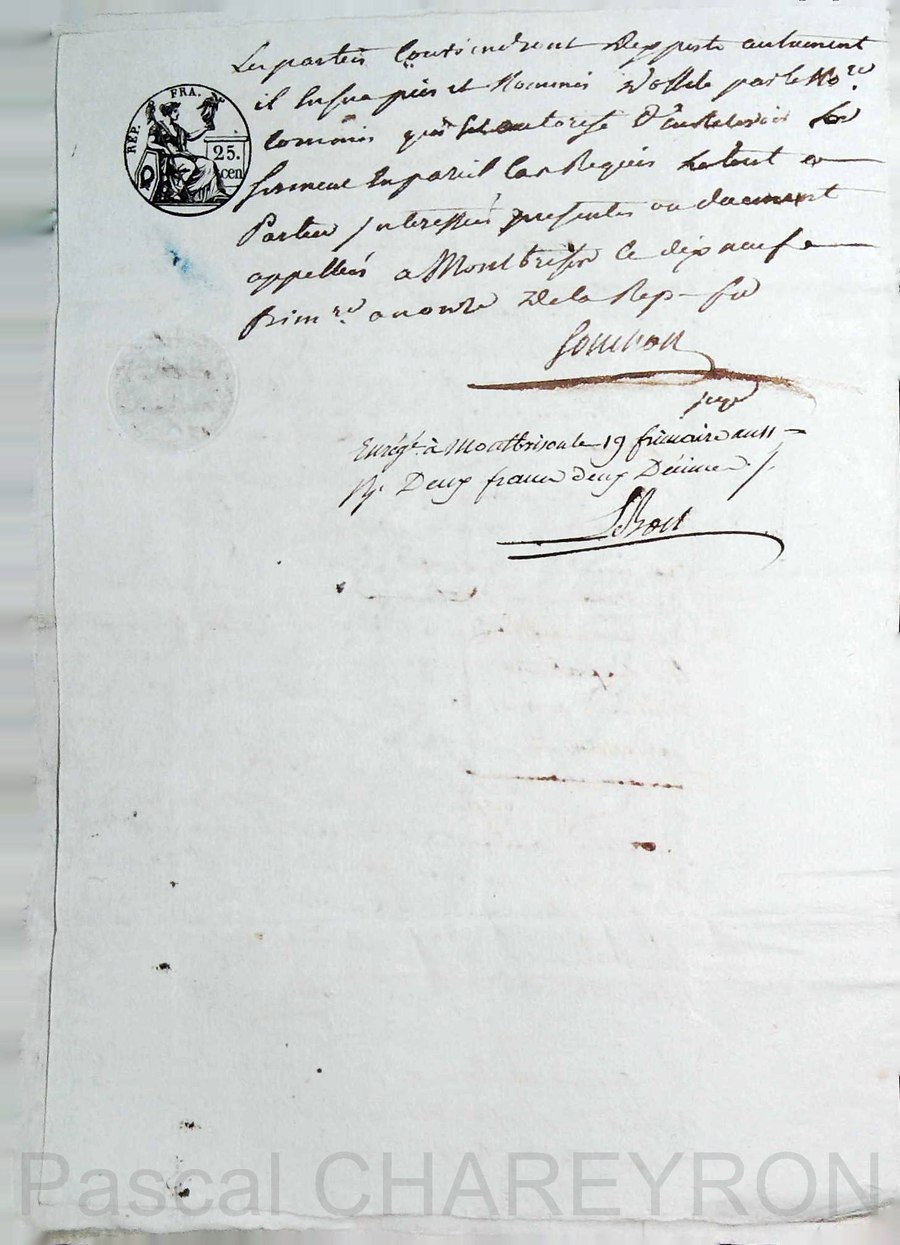 REP. FRA.
25.
cen
Les parties Conviendront d'experts autrement
il en sera pris et Nommés d'office par le No.re
commis qui est autorisé
serment en pareil Cas Requis le tout
Parties Interessées presentes ou duement
appellées a Montbrison Ce dix neuf
frim.re an onze De la Rep
juge
Enrégé à Montbrison le 19 frimaire an 11
R. Deux francs deux Décimes
LeBon
Pascal CHAREYRON